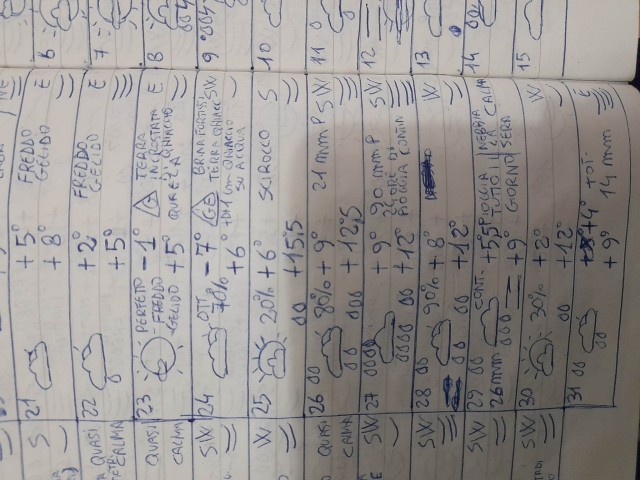 6
7
8
9
10
11
12
13
14
15
S
21
+5°
+8°
FREDDO
GELIDO
E
QUASI
CALMA
22
+2°
+5°
FREDDO
GELIDO
E
QUASI
CALMA
23
PERFETTO
FREDDO
GELIDO
-1°
+5°
TERRA
INCROSTATA
DI GHIACCIO
SW
24
OTT.
70%
-7°
+6°
TERRA GHIACC
SU ACQUA
SW
W
25
20%
+6°
+15,5
SCIROCCO
S
QUASI
CALMA
26
80%
+9°
+12,5
21 mm P
SW
SW
27
+9°
+12°
90 mm P
24 ORE DI
PIOGGIA CONTIN
SW
SW
28
90%
+8°
+12°
W
SW
29
26mm
CONT.
+5,5
+9°
PIOGGIA
TUTTO IL
GIORNO
NEBBIA
LA
SERA
CALMA
SW
30
30%
+2°
+12°
W
31
+4°
+9°
TOT.
14 mm
E